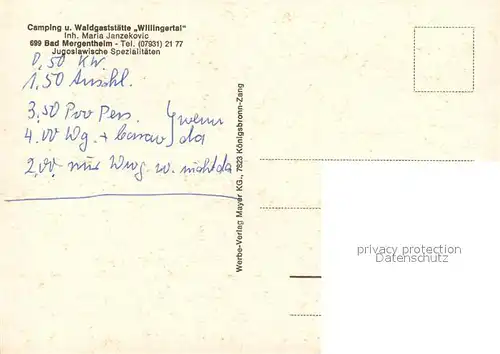 Camping u. Waldgaststätte „Willingertal"
Inh. Maria Janzekovic
699 Bad Mergentheim - Tel. (07931) 21 77
Jugoslawische Spezialitäten
0,50 KW
1,50 Anschl.
3,50 Pro Pers. } wenn
4.00 Wg. + da
2,00 nur Wwg. w. nicht da
Werbe-Verlag Mayer KG., 7923 Königsbronn-Zang
privacy protection
Datenschutz